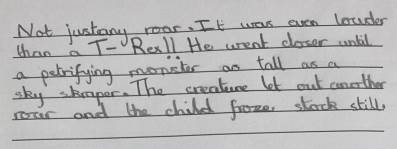 Not just any roar. It was even louder
than a T-Rex!! He went closer until
a petrifying monster as tall as a
sky skraper. The creature let out another
roar and the child froze stock still.